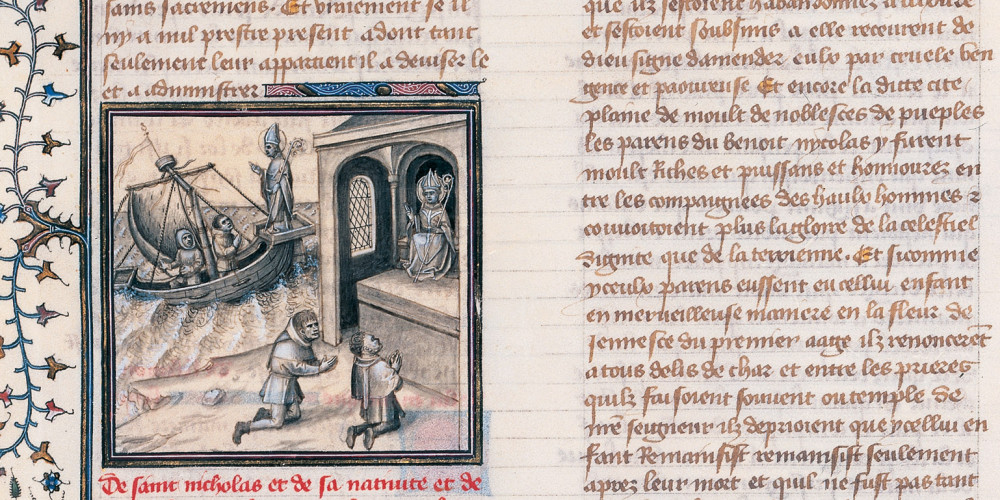 sains sacremens. Et vraiement se il
ny a nul prestre present adont tant
seulement leur appartient il a deviser le
et a administrer
De saint nicholas et de sa nativite et de
que ilz sestoient habandonnez a
et sestoient soubsmis a elle receurent de
dieu signe damender eulx par cruele ven
gence et paoureuse Et encore la ditte cite
plaine de moult de noblesces de pueples
les parens du benoit nycolas y furent
moult riches et puissans et honnourez en
tre les compaignees des haulx hommes &
couvoitoient plus la gloire de la celestiel
dignite que de la terrienne. Et si comme
yceulx parens eussent eu cellui enfant
en merveilleuse maniere en la fleur de
Jennesce du premier aage ilz renoncerēt
a tous delis de char et entre les prieres
quilz faisoient souvent ou temple de
nr̄e seigneur ilz deprioient que ycellui en
fant Remansist remansist seulement
aprez leur mort et quil ne fust pas tant